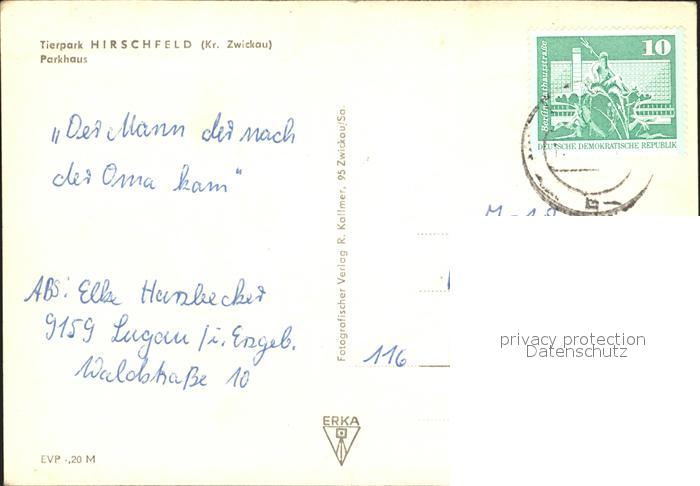 Tierpark HIRSCHFELD (Kr. Zwickau)
Parkhaus
„Der Mann der nach
der Oma kam"
ABS: Elke Harzbecker
9159 Lugau /i. Erzgeb.
Waldstraße 10
EVP -,20 M
Fotografischer Verlag R. Kallmer, 95 Zwickau/Sa.
ERKA
116
10
Berlin, Rathausstraße
DEUTSCHE DEMOKRATISCHE REPUBLIK
privacy protection
Datenschutz